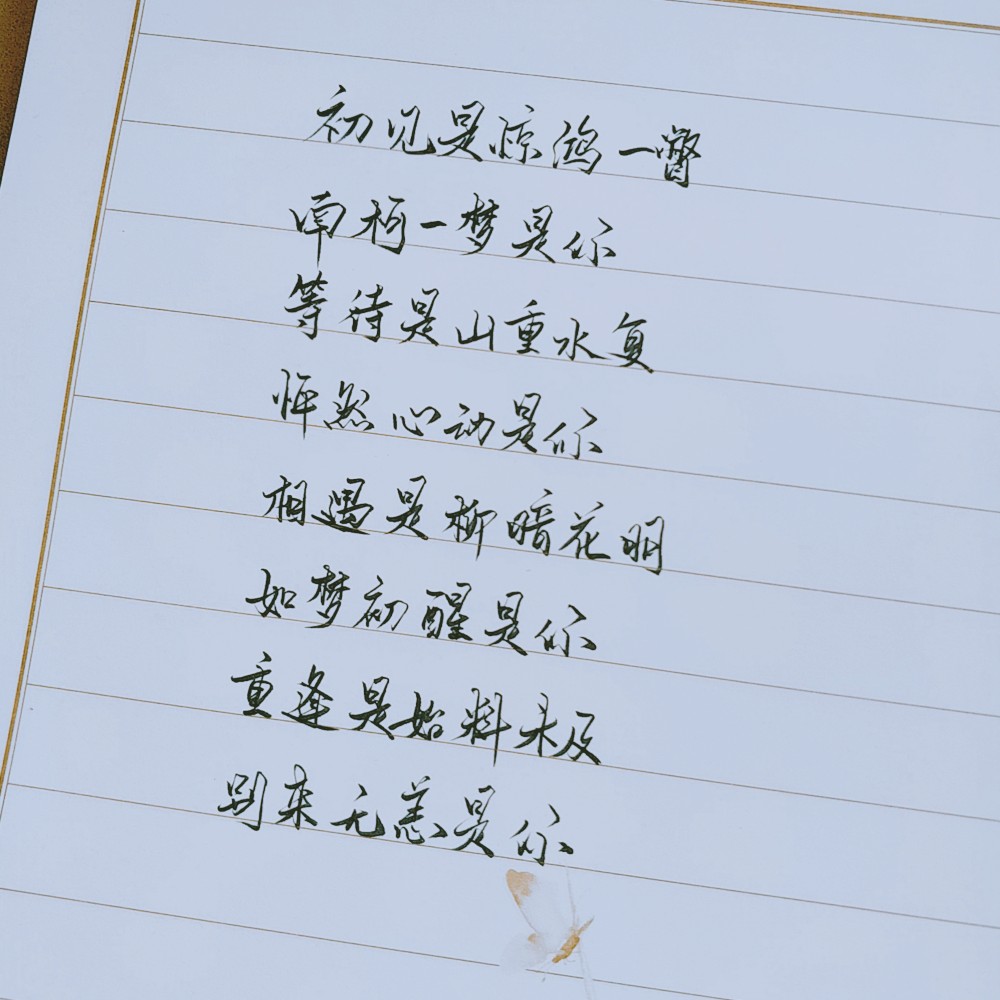 初见是惊鸿一瞥
南柯一梦是你
等待是山重水复
怦然心动是你
相遇是柳暗花明
如梦初醒是你
重逢是始料未及
别来无恙是你